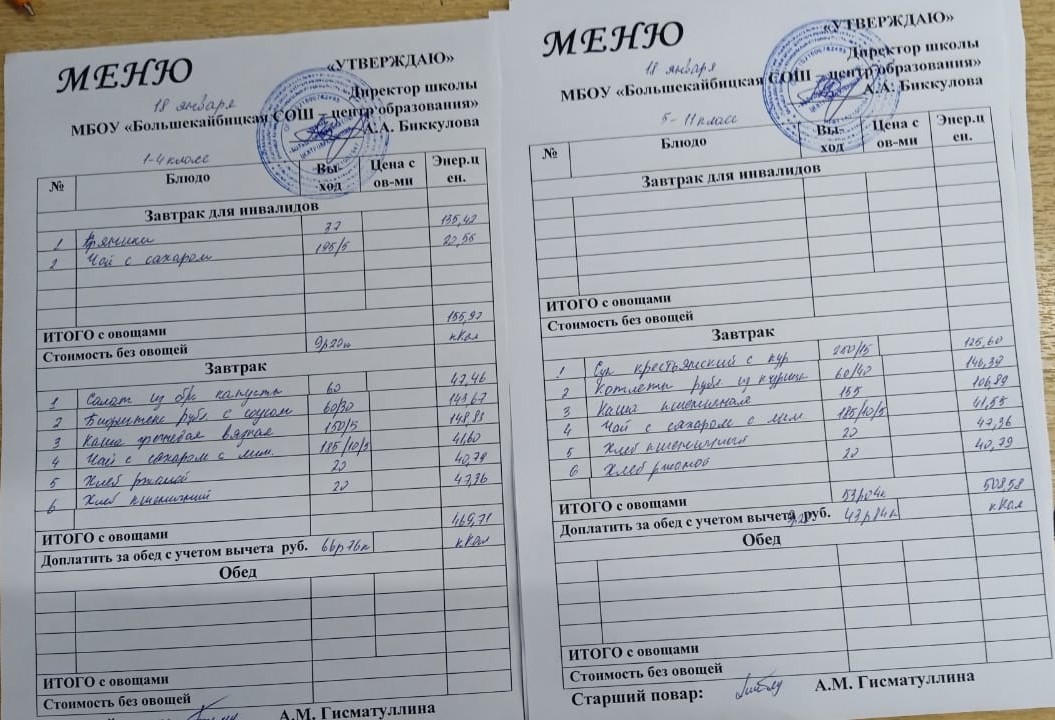 МЕНЮ
«УТВЕРЖДАЮ»
18 января
Директор школы
МБОУ «Большекайбицкая СОШ – центр образования»
А.А. Биккулова
1-4 класс
№ Блюдо Вы-ход Цена с ов-ми Энер.цен.
Завтрак для инвалидов
1 Пряники 37 135,42
2 Чай с сахаром 195/5 20,55
ИТОГО с овощами 155,97
Стоимость без овощей 9р20к кКал
Завтрак
1 Салат из капусты 60 47,46
2 Бифштекс руб. с соусом 60/30 143,67
3 Каша гречневая вязкая 150/5 148,83
4 Чай с сахаром с лим. 185/10/5 41,60
5 Хлеб ржаной 20 40,79
6 Хлеб пшеничный 20 47,36
ИТОГО с овощами 469,71
Доплатить за обед с учетом вычета руб. 66р76к кКал
Обед
ИТОГО с овощами
Стоимость без овощей
А.М. Гисматуллина
МЕНЮ
«УТВЕРЖДАЮ»
18 января
Директор школы
МБОУ «Большекайбицкая СОШ – центр образования»
А.А. Биккулова
5-11 класс
№ Блюдо Вы-ход Цена с ов-ми Энер.цен.
Завтрак для инвалидов
ИТОГО с овощами
Стоимость без овощей
Завтрак
1 Суп крестьянский с кур 250/15 125,60
2 Котлеты руб. из курицы 60/40 146,39
3 Каша пшеничная 155 106,89
4 Чай с сахаром с лим 185/10/5 41,55
5 Хлеб пшеничный 20 47,36
6 Хлеб ржаной 20 40,79
ИТОГО с овощами 53р04к 508,58
Доплатить за обед с учетом вычета руб. 43р84к кКал
Обед
ИТОГО с овощами
Стоимость без овощей
Старший повар: А.М. Гисматуллина